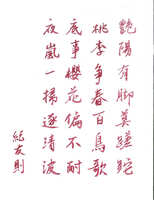 艷陽有脚莫蹉跎
桃李爭春百鳥歌
底事櫻花偏不耐
夜嵐一掃逐清波
紀友則